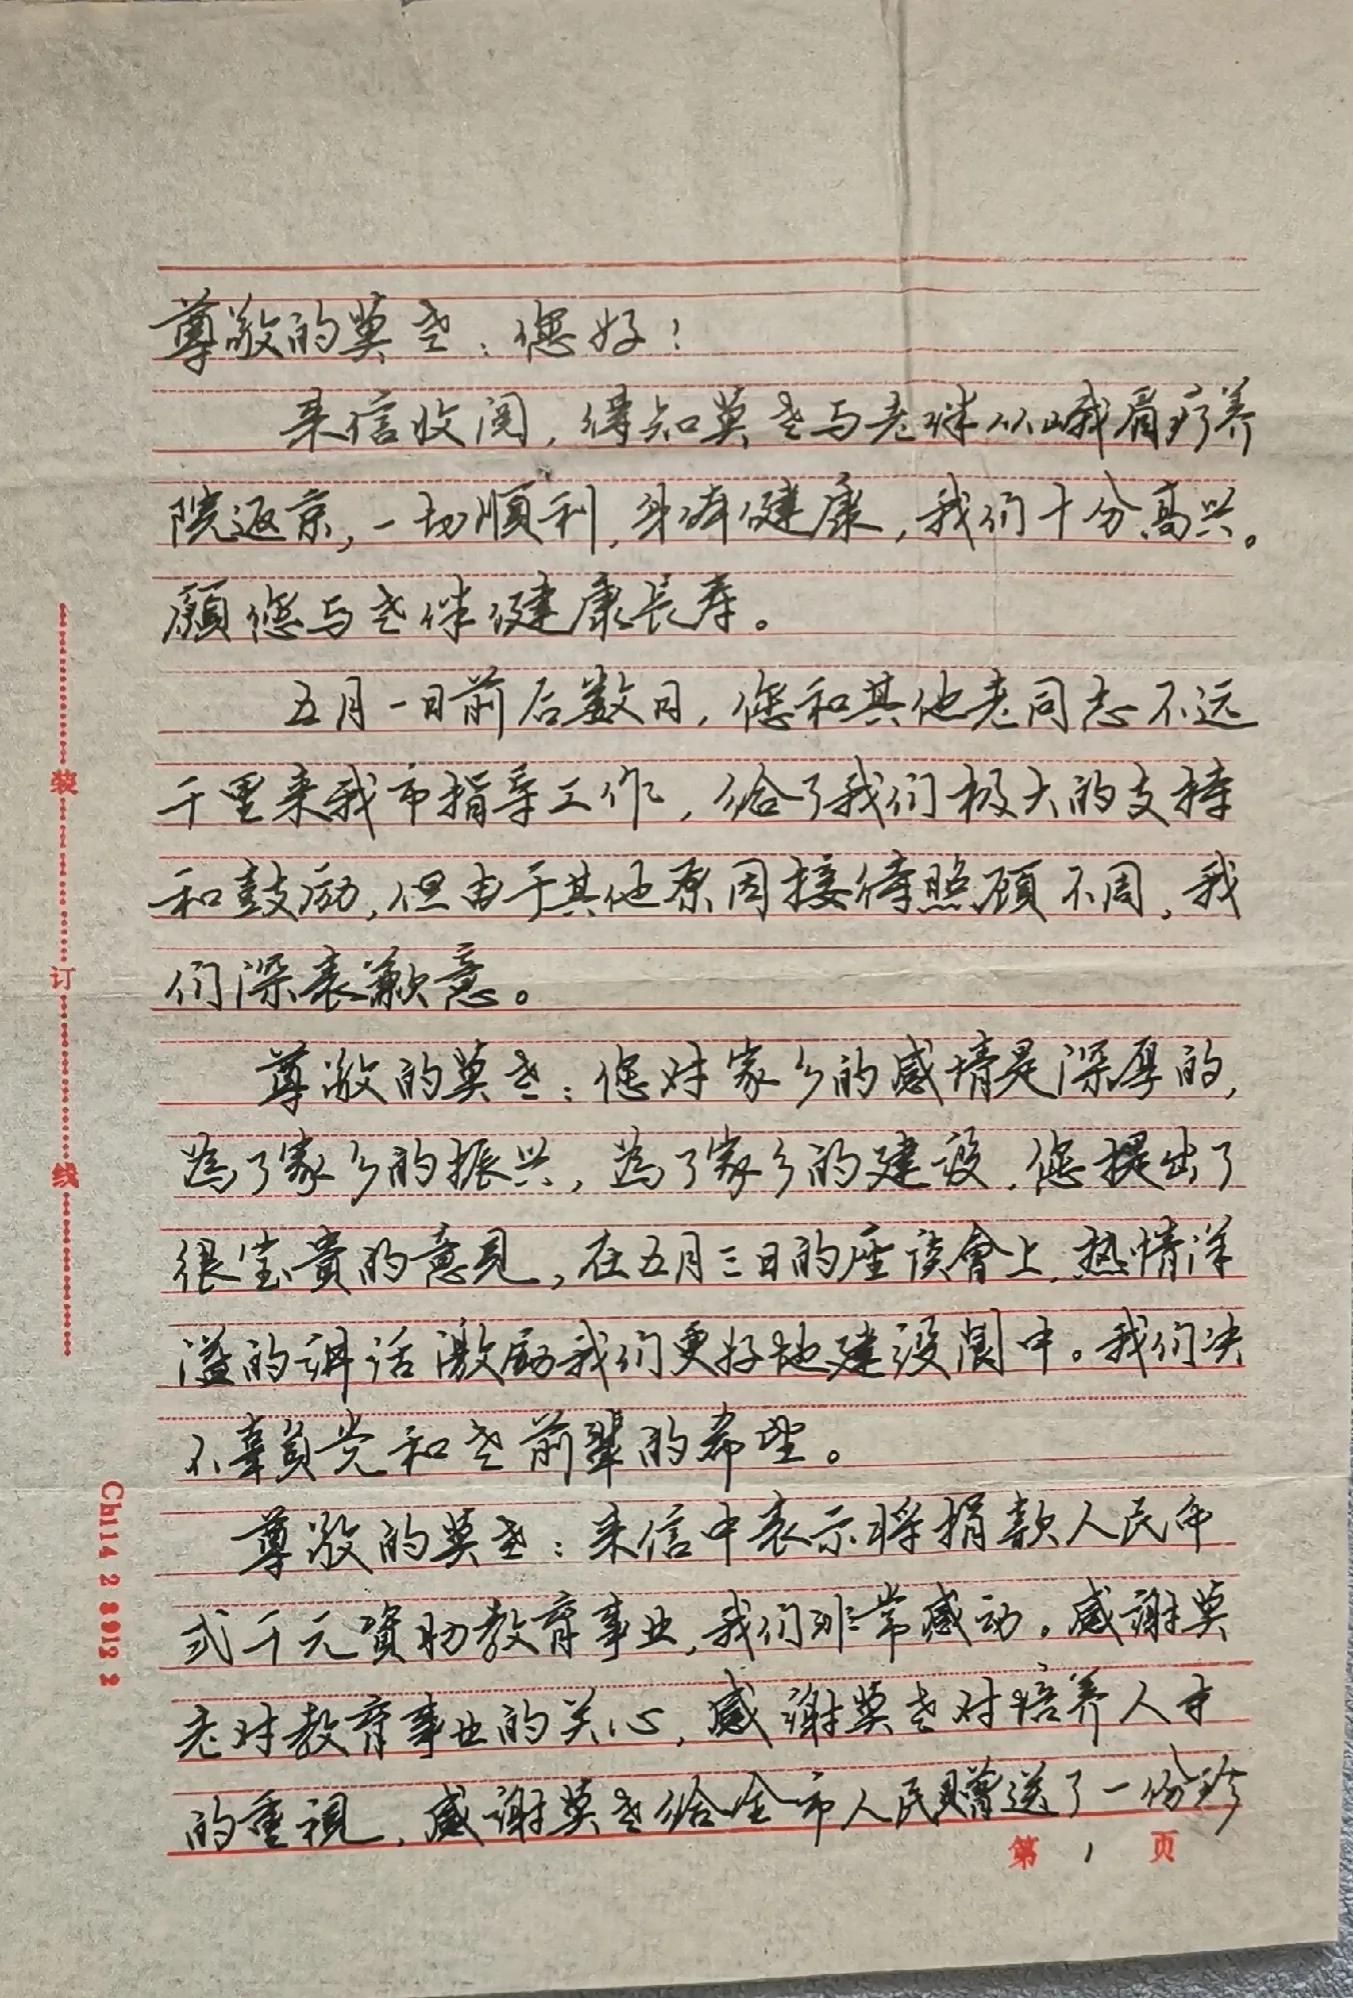 尊敬的莫老：您好！
来信收阅，得知莫老与老伴从峨眉疗养
院返京，一切順利，身体健康，我们十分高兴。
願您与老伴健康長寿。
五月一日前后数日，您和其他老同志不远
千里来我市指导工作，给了我们极大的支持
和鼓励，但由于其他原因接待照顾不周，我
们深表歉意。
尊敬的莫老：您对家乡的感情是深厚的，
為了家乡的振兴，為了家乡的建设，您提出了
很宝貴的意見，在五月三日的座谈會上，热情洋
溢的讲话激励我们更好地建设阆中。我们决
不辜負党和老前輩的希望。
尊敬的莫老：来信中表示将捐款人民币
弍千元資助教育事业，我们非常感动。感谢莫
老对教育事业的关心，感谢莫老对培养人才
的重視，感谢莫老给全市人民贈送了一份珍
第 1 页
装
订
线
Ch114 2 8912 2